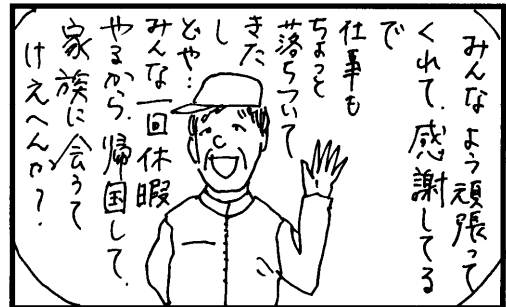 みんなよう頑張って
くれて、感謝してる
で
仕事も
ちょっと
落ちついて
きた
し
どや…
みんな一回休暇
やるから、帰国して、
家族に会うて
けえへんか？